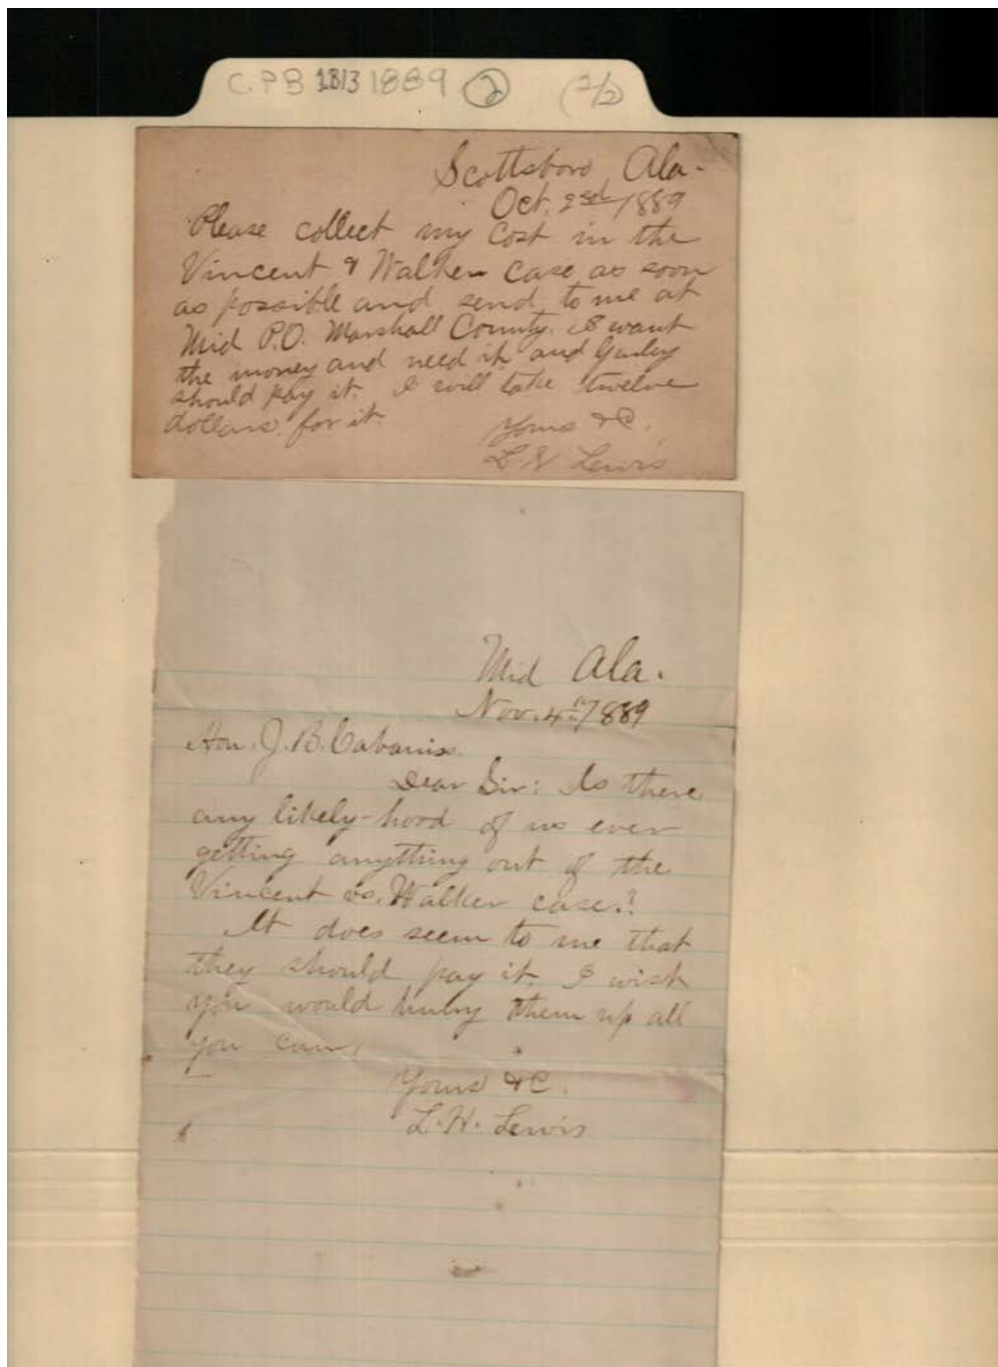 C.P.B 1813 1889 2 (2/2)
Scottsboro, Ala.
Oct. 2nd 1889
Please collect my cost in the
Vincent & Walker case as soon
as possible and send to me at
Mid P.O. Marshall County. I want
the money and need it and Gurley
should pay it. I will take twelve
dollars for it.
Yours &C.
L. H Lewis
Mid Ala.
Nov. 4th 1889
Hon. J. B. Cabaniss.
Dear Sir: Is there
any likely-hood of us ever
getting anything out of the
Vincent vs. Walker case?
It does seem to me that
they should pay it. I wish
you would hurry them up all
you can.
Yours &C.
L. H. Lewis